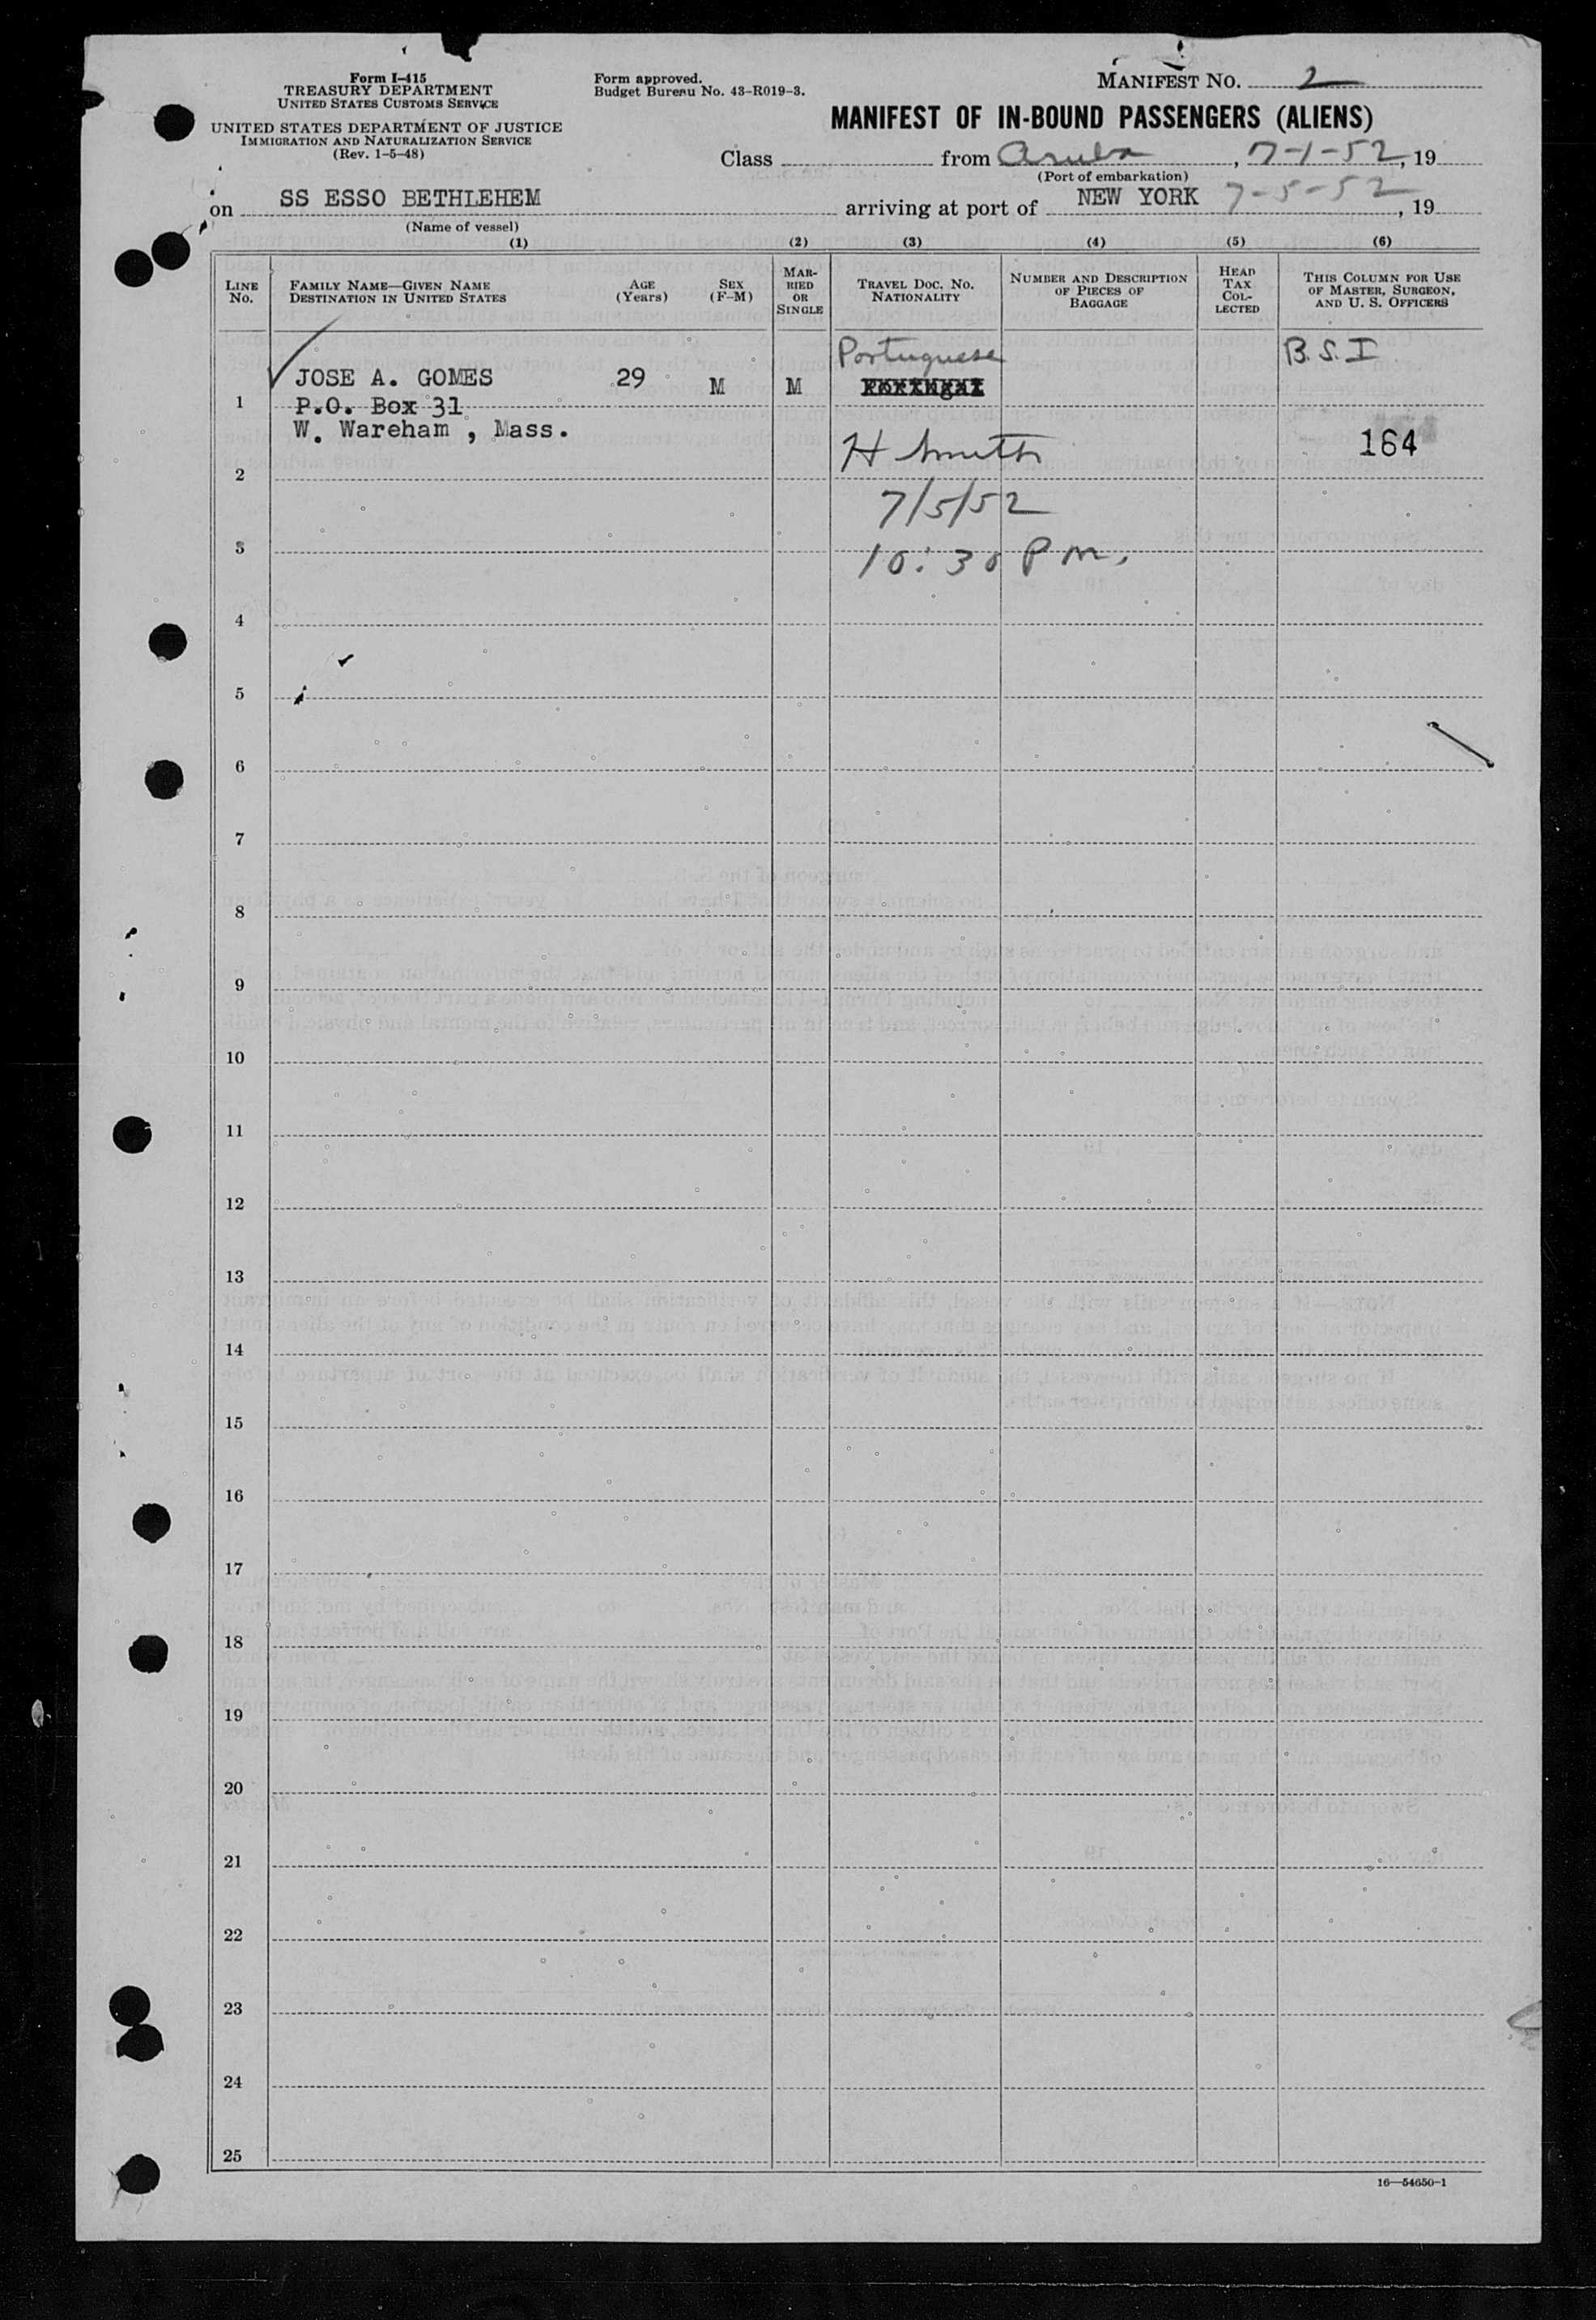 Form I-415
TREASURY DEPARTMENT
UNITED STATES CUSTOMS SERVICE
UNITED STATES DEPARTMENT OF JUSTICE
IMMIGRATION AND NATURALIZATION SERVICE
(Rev. 1-5-48)
Form approved.
Budget Bureau No. 43-R019-3.
MANIFEST NO. 2
MANIFEST OF IN-BOUND PASSENGERS (ALIENS)
Class from Aruba, 7-1-52, 19
(Port of embarkation)
on SS ESSO BETHLEHEM arriving at port of NEW YORK 7-5-52, 19
(Name of vessel)
(1) (2) (3) (4) (5) (6)
LINE NO. FAMILY NAME—GIVEN NAME DESTINATION IN UNITED STATES AGE (Years) SEX (F-M) MARRIED OR SINGLE TRAVEL DOC. NO. NATIONALITY NUMBER AND DESCRIPTION OF PIECES OF BAGGAGE HEAD TAX COLLECTED THIS COLUMN FOR USE OF MASTER, SURGEON, AND U. S. OFFICERS
Portuguese B.S.I
JOSE A. GOMES 29 M M
1 P.O. Box 31
W. Wareham , Mass.
H Smith 164
2
7/5/52
3
10:30 Pm.
4
5
6
7
8
9
10
11
12
13
14
15
16
17
18
19
20
21
22
23
24
25
16—54650-1